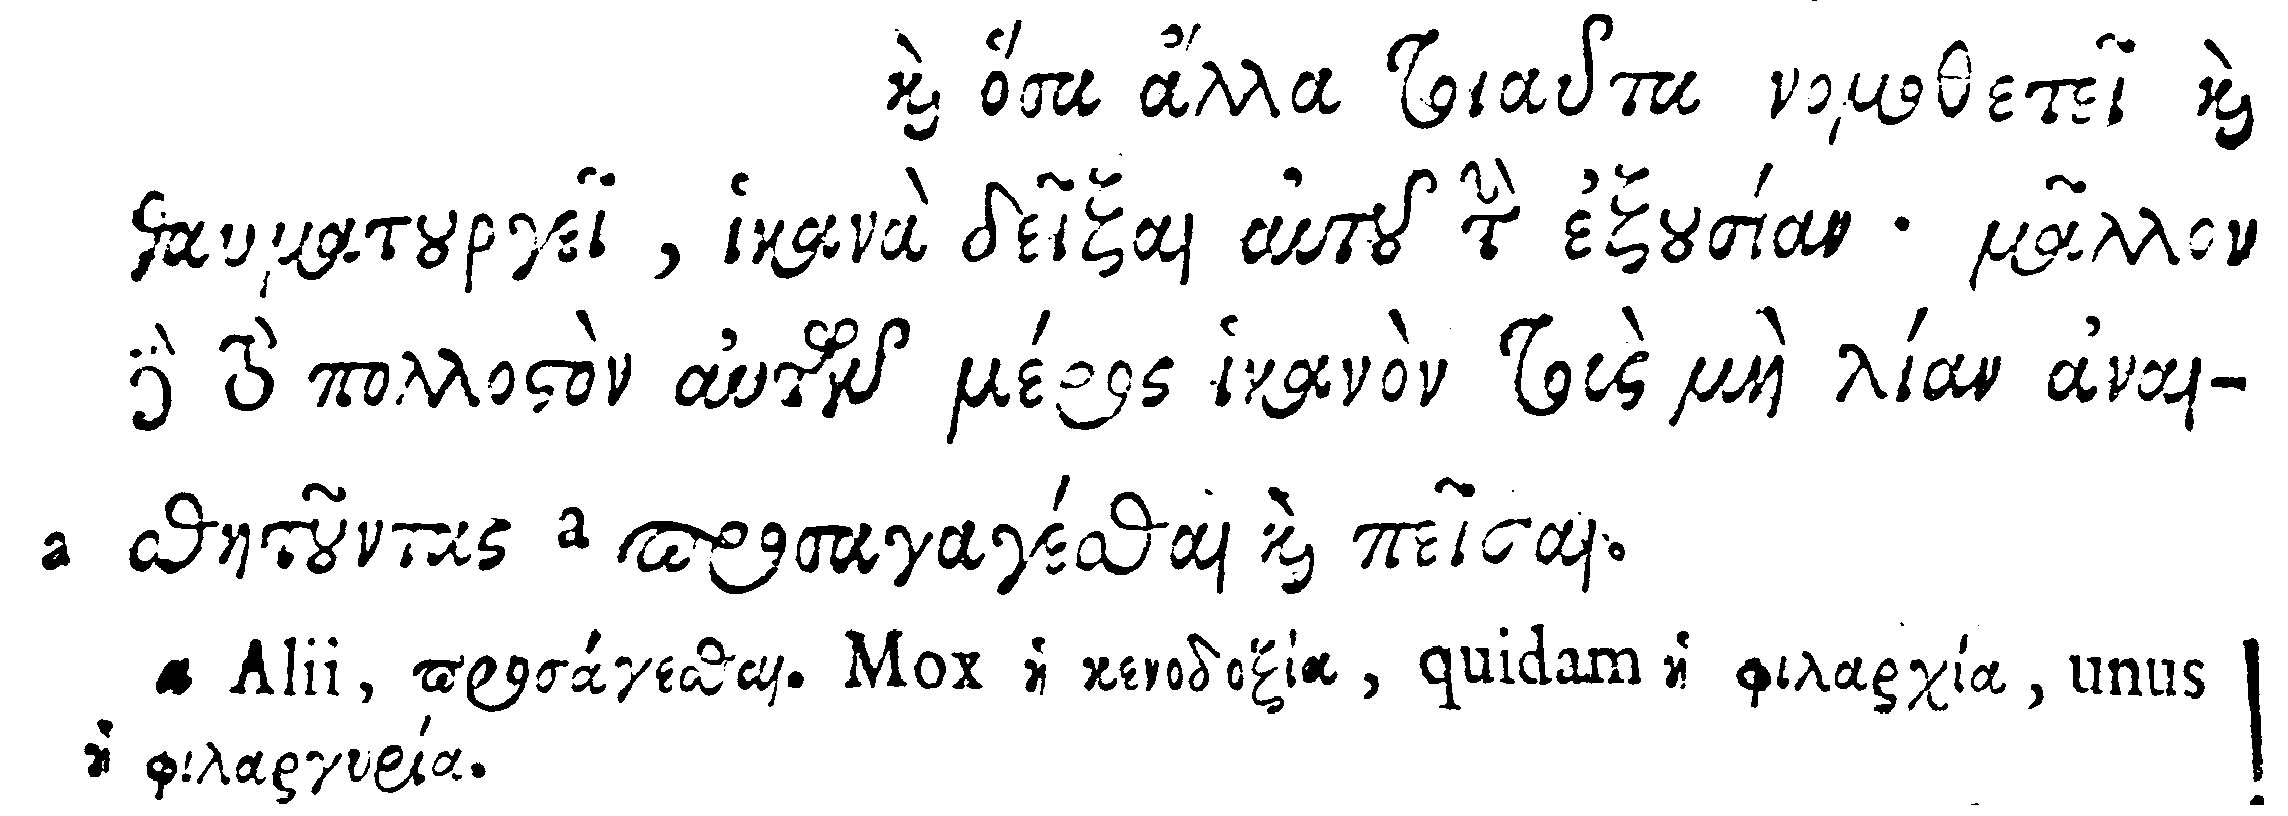 καὶ ὅσα ἄλλα τοιαῦτα νομοθετεῖ καὶ
θαυματουργεῖ, ἱκανὰ δεῖξαι αὐτοῦ τὴν ἐξουσίαν· μᾶλλον
δὲ τὸ πολλοστὸν αὐτῶν μέρος ἱκανὸν τοὺς μὴ λίαν ἀναι-
a σθητοῦντας a προσαγαγέσθαι καὶ πεῖσαι.
a Alii, προσάγεσθαι. Mox ἡ κενοδοξία, quidam ἡ φιλαρχία, unus
ἡ φιλαργυρία.